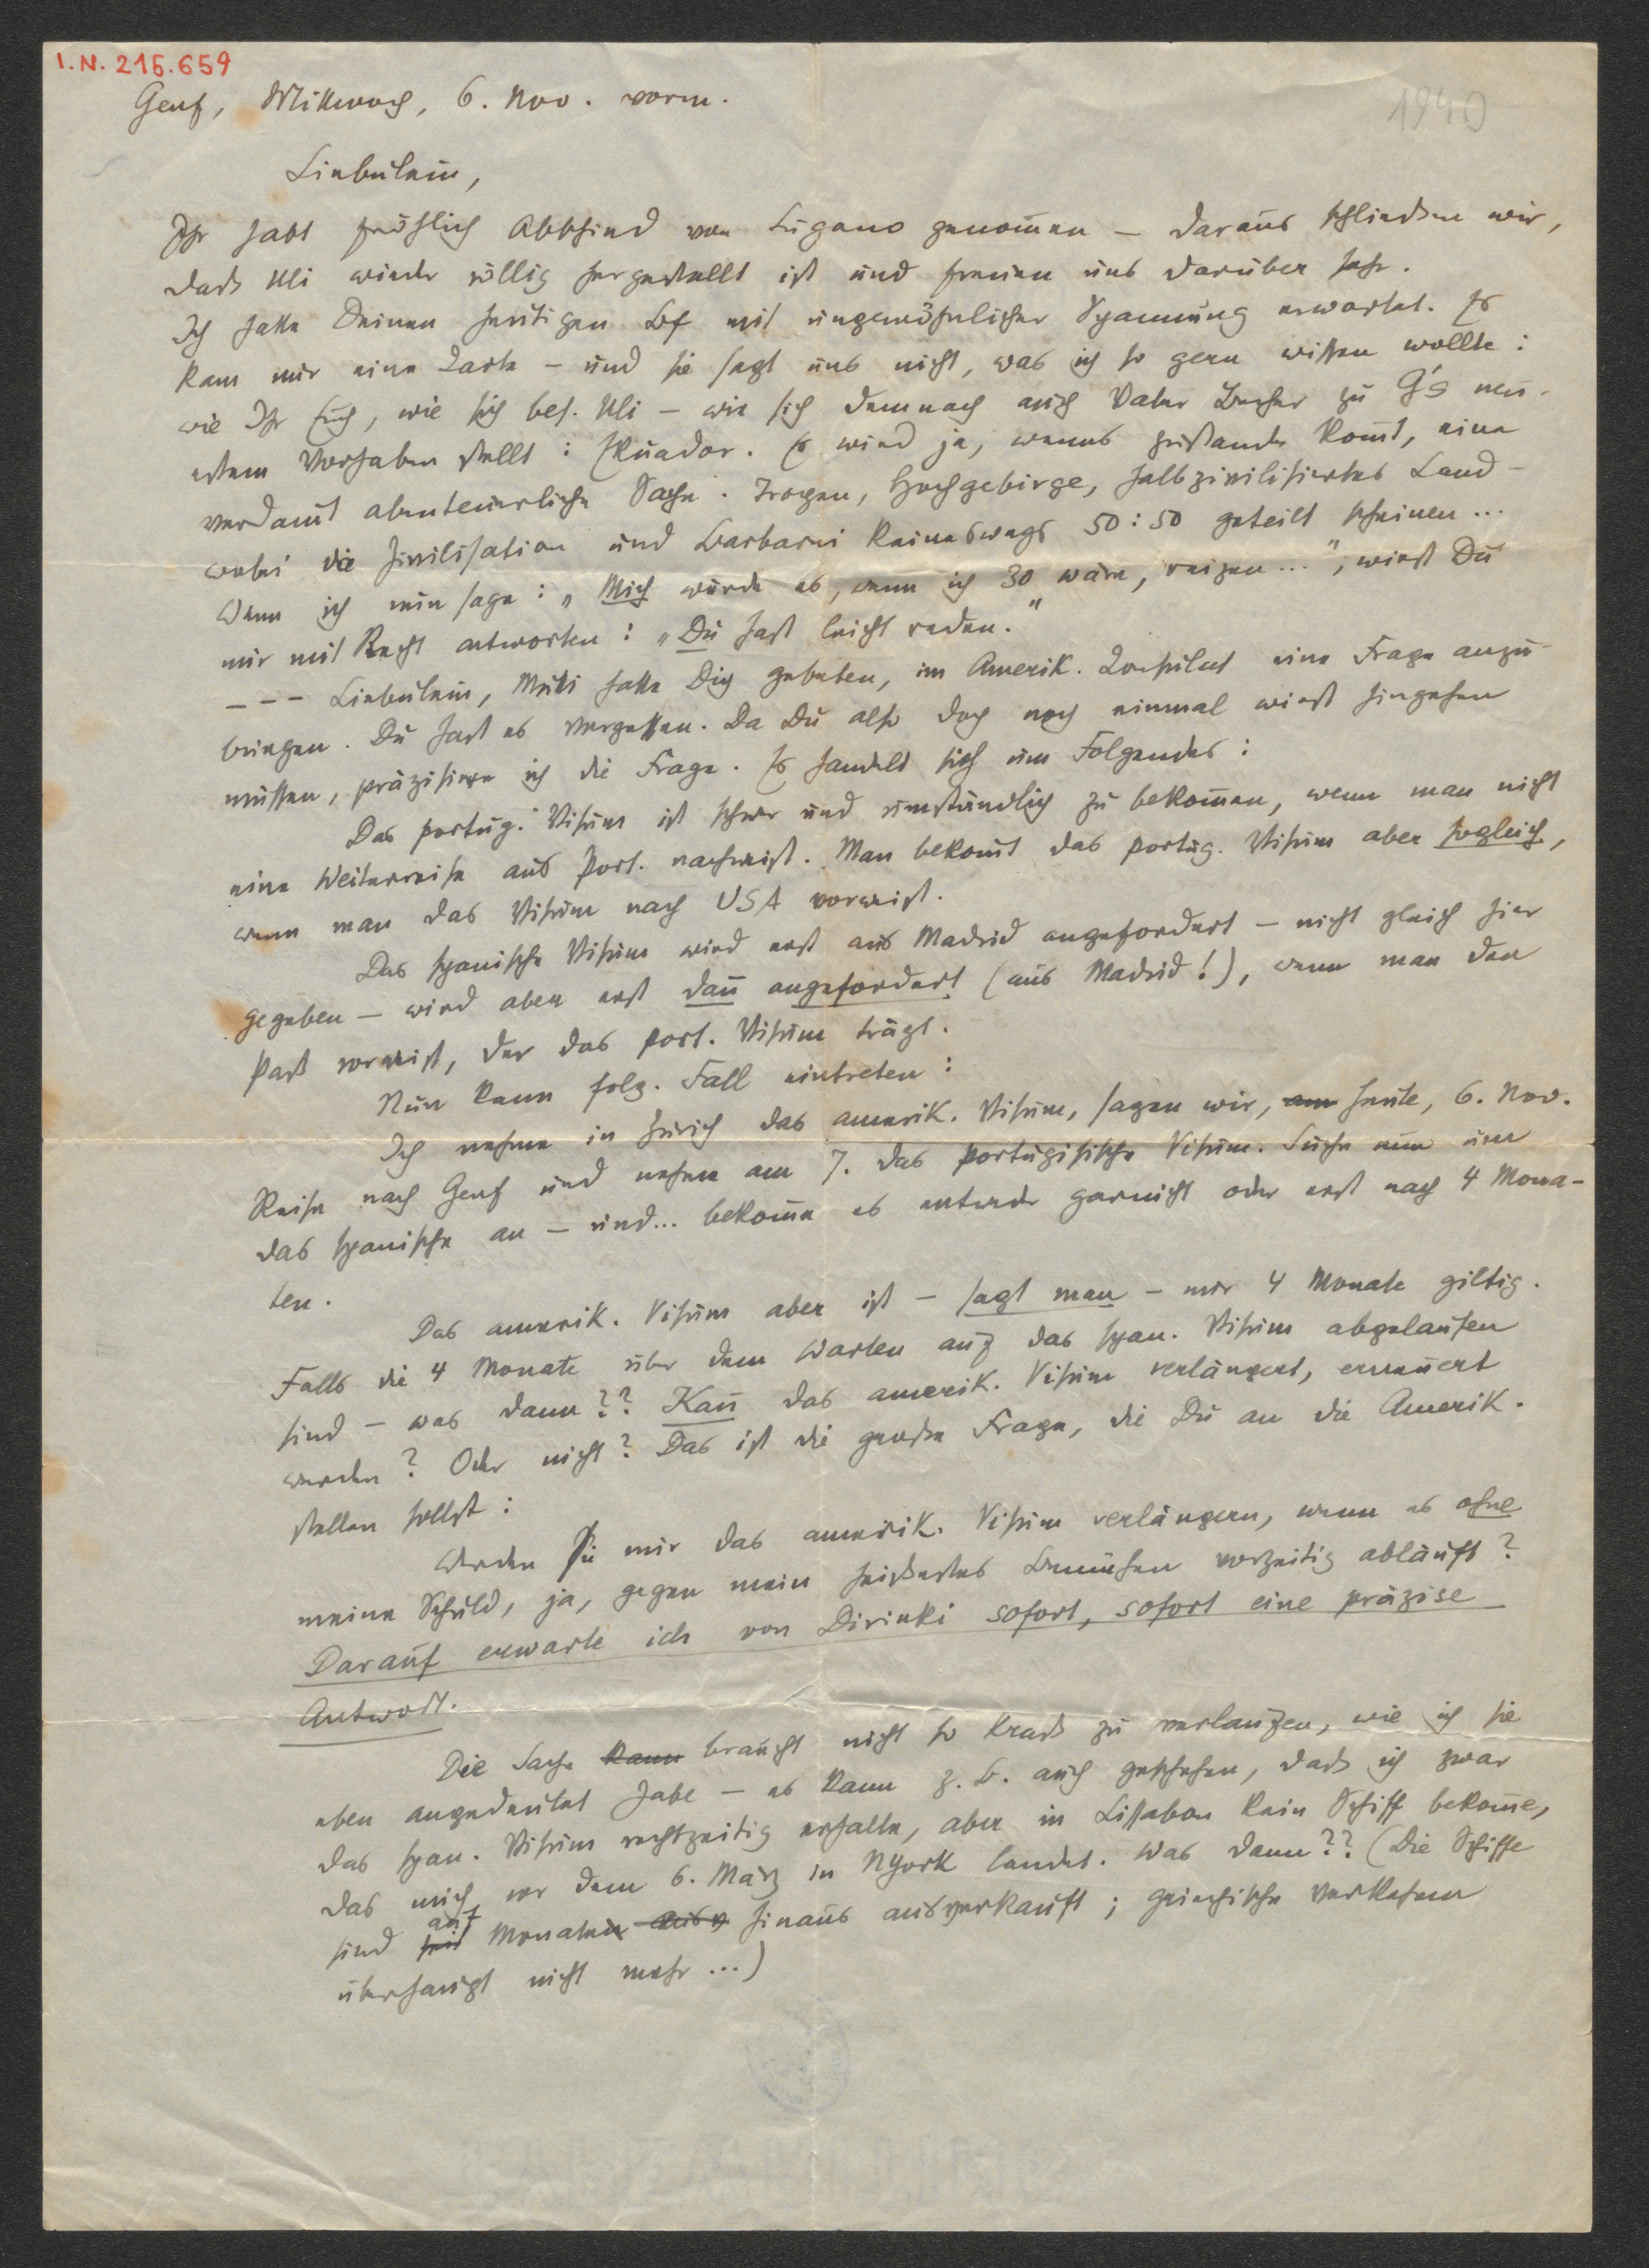 I.N. 215.659
Genf, Mittwoch, 6. Nov. vorm.
1940
Liebulein,
Ihr habt fröhlich Abschied von Lugano genommen – daraus schliedsen wir,
dass Uli wieder völlig hergestellt ist und freuen uns darüber sehr.
Ich hatte Deinen heutigen Bf mit ungewöhnlicher Spannung erwartet. Es
kam nur eine Karte – und sie sagt uns nicht, was ich so gern wissen wollte:
wie Ihr Euch, wie sich bes. Uli – wie sich demnach auch Vater Becher zu G's neu-
estem Vorhaben stellt: Ekuador. Es wird ja, wenns zustande kom̄t, eine
verdam̄t abenteuerliche Sache. Tropen, Hochgebirge, halbzivilisiertes Land –
wobei die Zivilisation und Barbarei keineswegs 50:50 geteilt scheinen...
Wenn ich nun sage: „Mich würde es, wenn ich 30 wäre, reizen...", wirst Du
mir mit Recht antworten: „Du hast leicht reden."
--- Liebulein, Muki hatte Dich gebeten, im Amerik. Konsulat eine Frage anzu-
bringen. Du hast es vergessen. Da Du also doch noch einmal wirst hingehen
müssen, präzisiere ich die Frage. Es handelt sich um Folgendes:
Das portug. Visum ist schwer und umständlich zu bekom̄en, wenn man nicht
eine Weiterreise aus Port. nachweist. Man bekom̄t das portug. Visum aber sogleich,
wenn man das Visum nach USA vorweist.
Das spanische Visum wird erst aus Madrid angefordert – nicht gleich hier
gegeben – wird aber erst dan̄ angefordert (aus Madrid!), wenn man den
Pass vorweist, der das port. Visum trägt.
Nun kann folg. Fall eintreten:
Ich nehme in Zürich das amerik. Visum, sagen wir, am heute, 6. Nov.
Reise nach Genf und nehme am 7. das portugisische Visum. Suche nun um
das spanische an – und... bekom̄e es entweder garnicht oder erst nach 4 Mona-
ten.
Das amerik. Visum aber ist – sagt man – nur 4 Monate giltig.
Falls die 4 Monate über dem Warten auf das span. Visum abgelaufen
sind – was dann?? Kan̄ das amerik. Visum verlängert, erneuert
werden? Oder nicht? Das ist die grosse Frage, die Du an die Amerik.
stellen sollst:
Werden Sie mir das amerik. Visum verlängern, wenn es ohne
meine Schuld, ja, gegen mein heissestes Bemühen vorzeitig abläuft?
Darauf erwarte ich von Dirinki sofort, sofort eine präzise
Antwort.
Die Sache kann braucht nicht so krass zu verlaufen, wie ich sie
eben angedeutet habe – es kann z.B. auch geschehen, dass ich zwar
das span. Visum rechtzeitig erhalte, aber in Lissabon kein Schiff bekom̄e,
das mich vor dem 6. März in NYork landet. Was dann?? (Die Schiffe
sind seit auf Monate hinaus ausverkauft; griechische verkehren
überhaupt nicht mehr...)